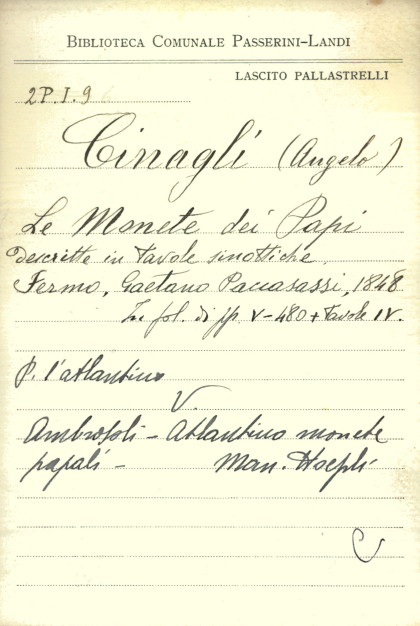 BIBLIOTECA COMUNALE PASSERINI-LANDI
LASCITO PALLASTRELLI
2P.I.9
Cinagli (Angelo)
Le Monete dei Papi
descritte in tavole sinottiche.
Fermo, Gaetano Paccasassi, 1848
In fol. di pp. V-480 + tavole IV.
P. l'atlantino
V.
Ambrosoli - Atlantino monete
papali - Man. Hoepli